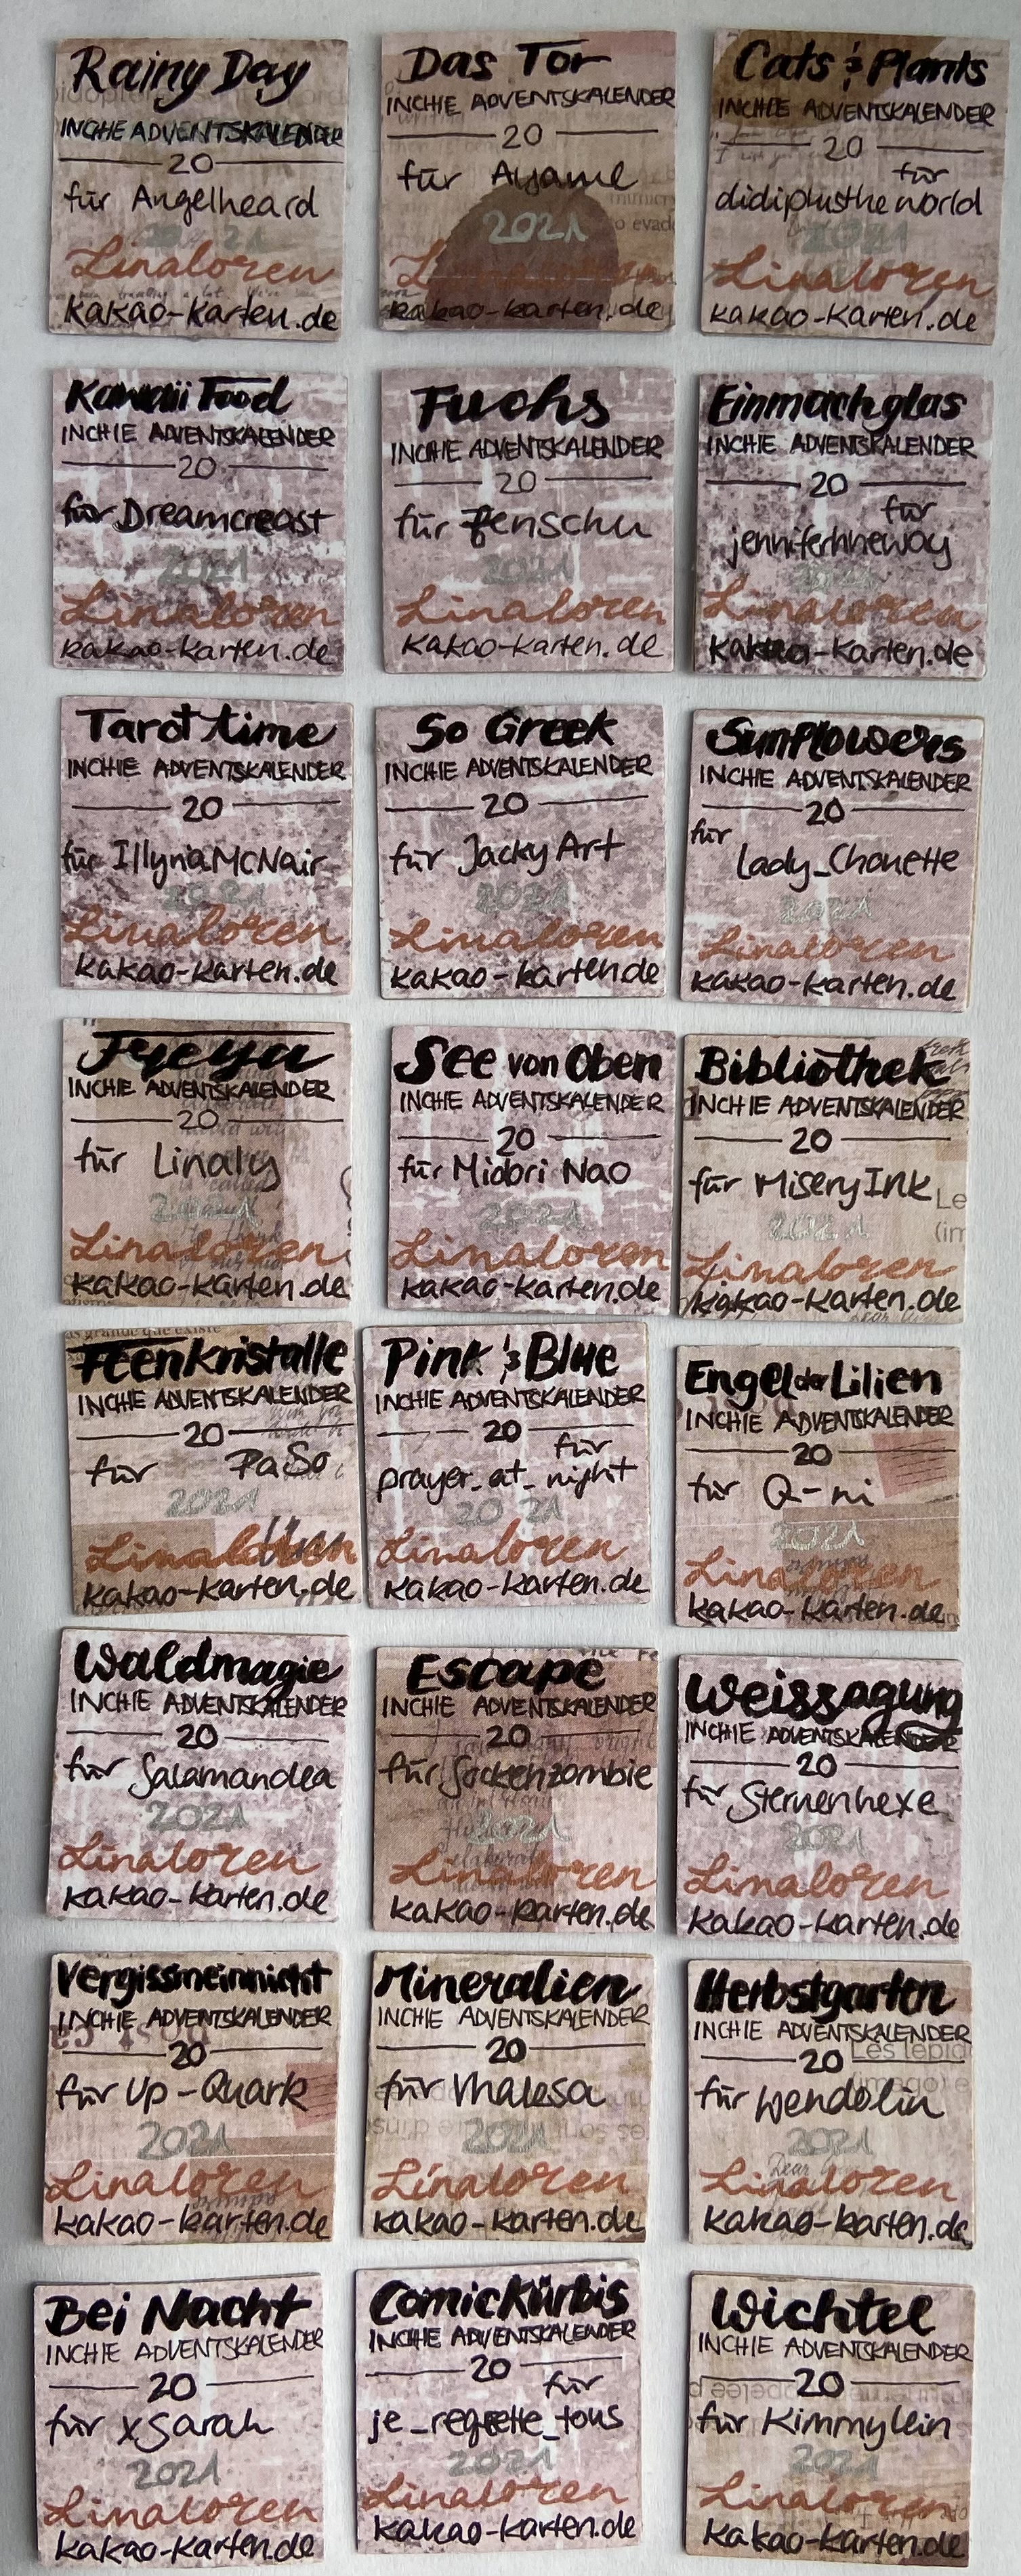 Rainy Day
INCHIE ADVENTSKALENDER
20
für Angelheard
2021
Linaloren
kakao-karten.de
Das Tor
INCHIE ADVENTSKALENDER
20
für Ayame
2021
Linaloren
kakao-karten.de
Cats & Plants
INCHIE ADVENTSKALENDER
20
für
didiplustheworld
2021
Linaloren
kakao-karten.de
Kawaii Food
INCHIE ADVENTSKALENDER
20
für Dreamcreast
2021
Linaloren
kakao-karten.de
Fuchs
INCHIE ADVENTSKALENDER
20
für Fenschu
2021
Linaloren
kakao-karten.de
Einmachglas
INCHIE ADVENTSKALENDER
20
für
jenniferhneway
2021
Linaloren
kakao-karten.de
Tarot time
INCHIE ADVENTSKALENDER
20
für IllyriaMcNair
2021
Linaloren
kakao-karten.de
So Greek
INCHIE ADVENTSKALENDER
20
für JackyArt
2021
Linaloren
kakao-karten.de
Sunflowers
INCHIE ADVENTSKALENDER
20
für
Lady_Chouette
2021
Linaloren
kakao-karten.de
Freya
INCHIE ADVENTSKALENDER
20
für Linaly
2021
Linaloren
kakao-karten.de
See von Oben
INCHIE ADVENTSKALENDER
20
für Midori Nao
2021
Linaloren
kakao-karten.de
Bibliothek
INCHIE ADVENTSKALENDER
20
für MiseryInk
2021
Linaloren
kakao-karten.de
Feenkristalle
INCHIE ADVENTSKALENDER
20
für PaSo
2021
Linaloren
kakao-karten.de
Pink & Blue
INCHIE ADVENTSKALENDER
20
für
prayer_at_night
2021
Linaloren
kakao-karten.de
Engel der Lilien
INCHIE ADVENTSKALENDER
20
für Q-ni
2021
Linaloren
kakao-karten.de
Waldmagie
INCHIE ADVENTSKALENDER
20
für Salamandea
2021
Linaloren
kakao-karten.de
Escape
INCHIE ADVENTSKALENDER
20
für Sockenzombie
2021
Linaloren
kakao-karten.de
Weissagung
INCHIE ADVENTSKALENDER
20
für Sternenhexe
2021
Linaloren
kakao-karten.de
Vergissmeinnicht
INCHIE ADVENTSKALENDER
20
für Up-Quark
2021
Linaloren
kakao-karten.de
Mineralien
INCHIE ADVENTSKALENDER
20
für Vhalesa
2021
Linaloren
kakao-karten.de
Herbstgarten
INCHIE ADVENTSKALENDER
20
für Wendolin
2021
Linaloren
kakao-karten.de
Bei Nacht
INCHIE ADVENTSKALENDER
20
für xSarah
2021
Linaloren
kakao-karten.de
Comic Kürbis
INCHIE ADVENTSKALENDER
20
für
je_regrette_tous
2021
Linaloren
kakao-karten.de
Wichtel
INCHIE ADVENTSKALENDER
20
für Kimmylein
2021
Linaloren
kakao-karten.de